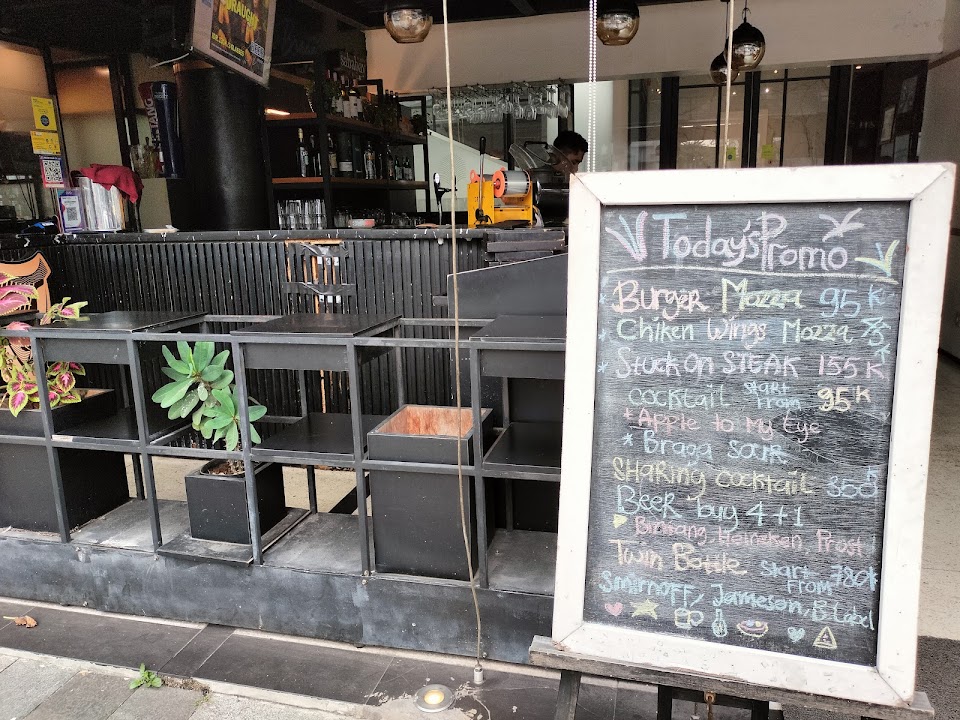 DRAUGHT
Today's Promo
Burger Mozza 95K
Chiken Wings Mozza 75K
Stuck On STEAK 155K
cocktail start From 95K
* Apple to My Eye
* Braga sour
SHaring cocktail 350
Beer buy 4+1
Bintang, Heineken, Prost
Twin Bottle start From 780K
Smirnoff, Jameson, B. Label